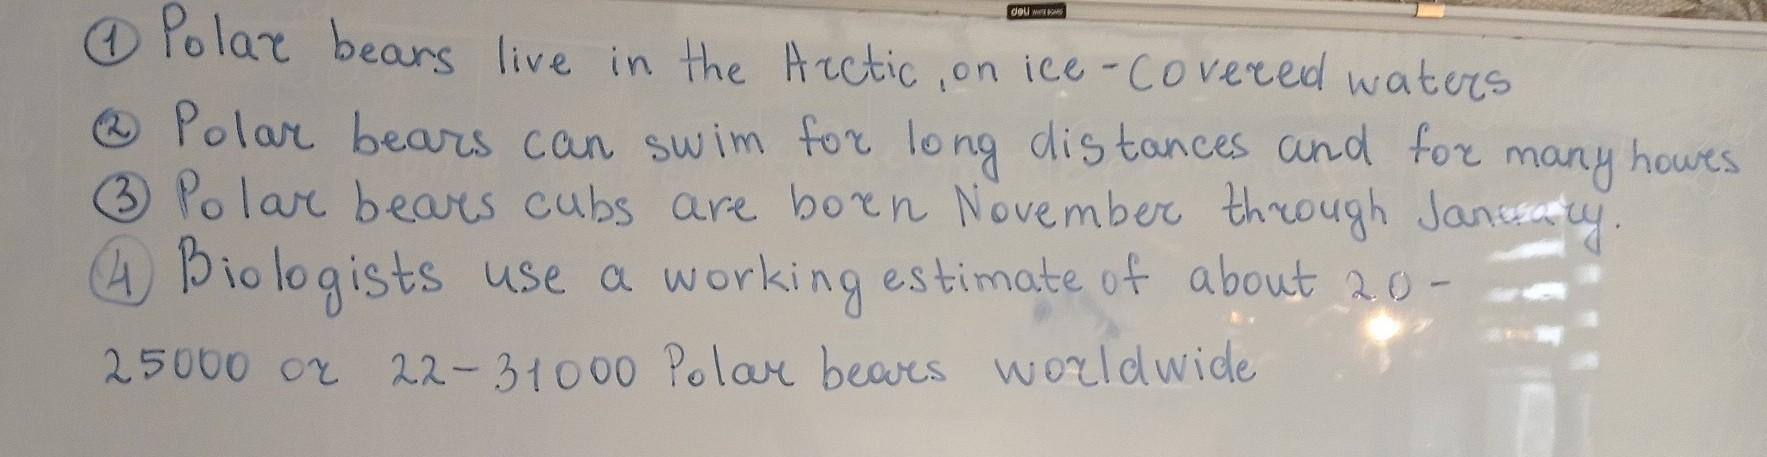 deli WHITE BOARD
① Polar bears live in the Arctic, on ice-covered waters
② Polar bears can swim for long distances and for many howrs
③ Polar bears cubs are born November through January.
④ Biologists use a working estimate of about 20-
25000 or 22-31000 Polar bears worldwide